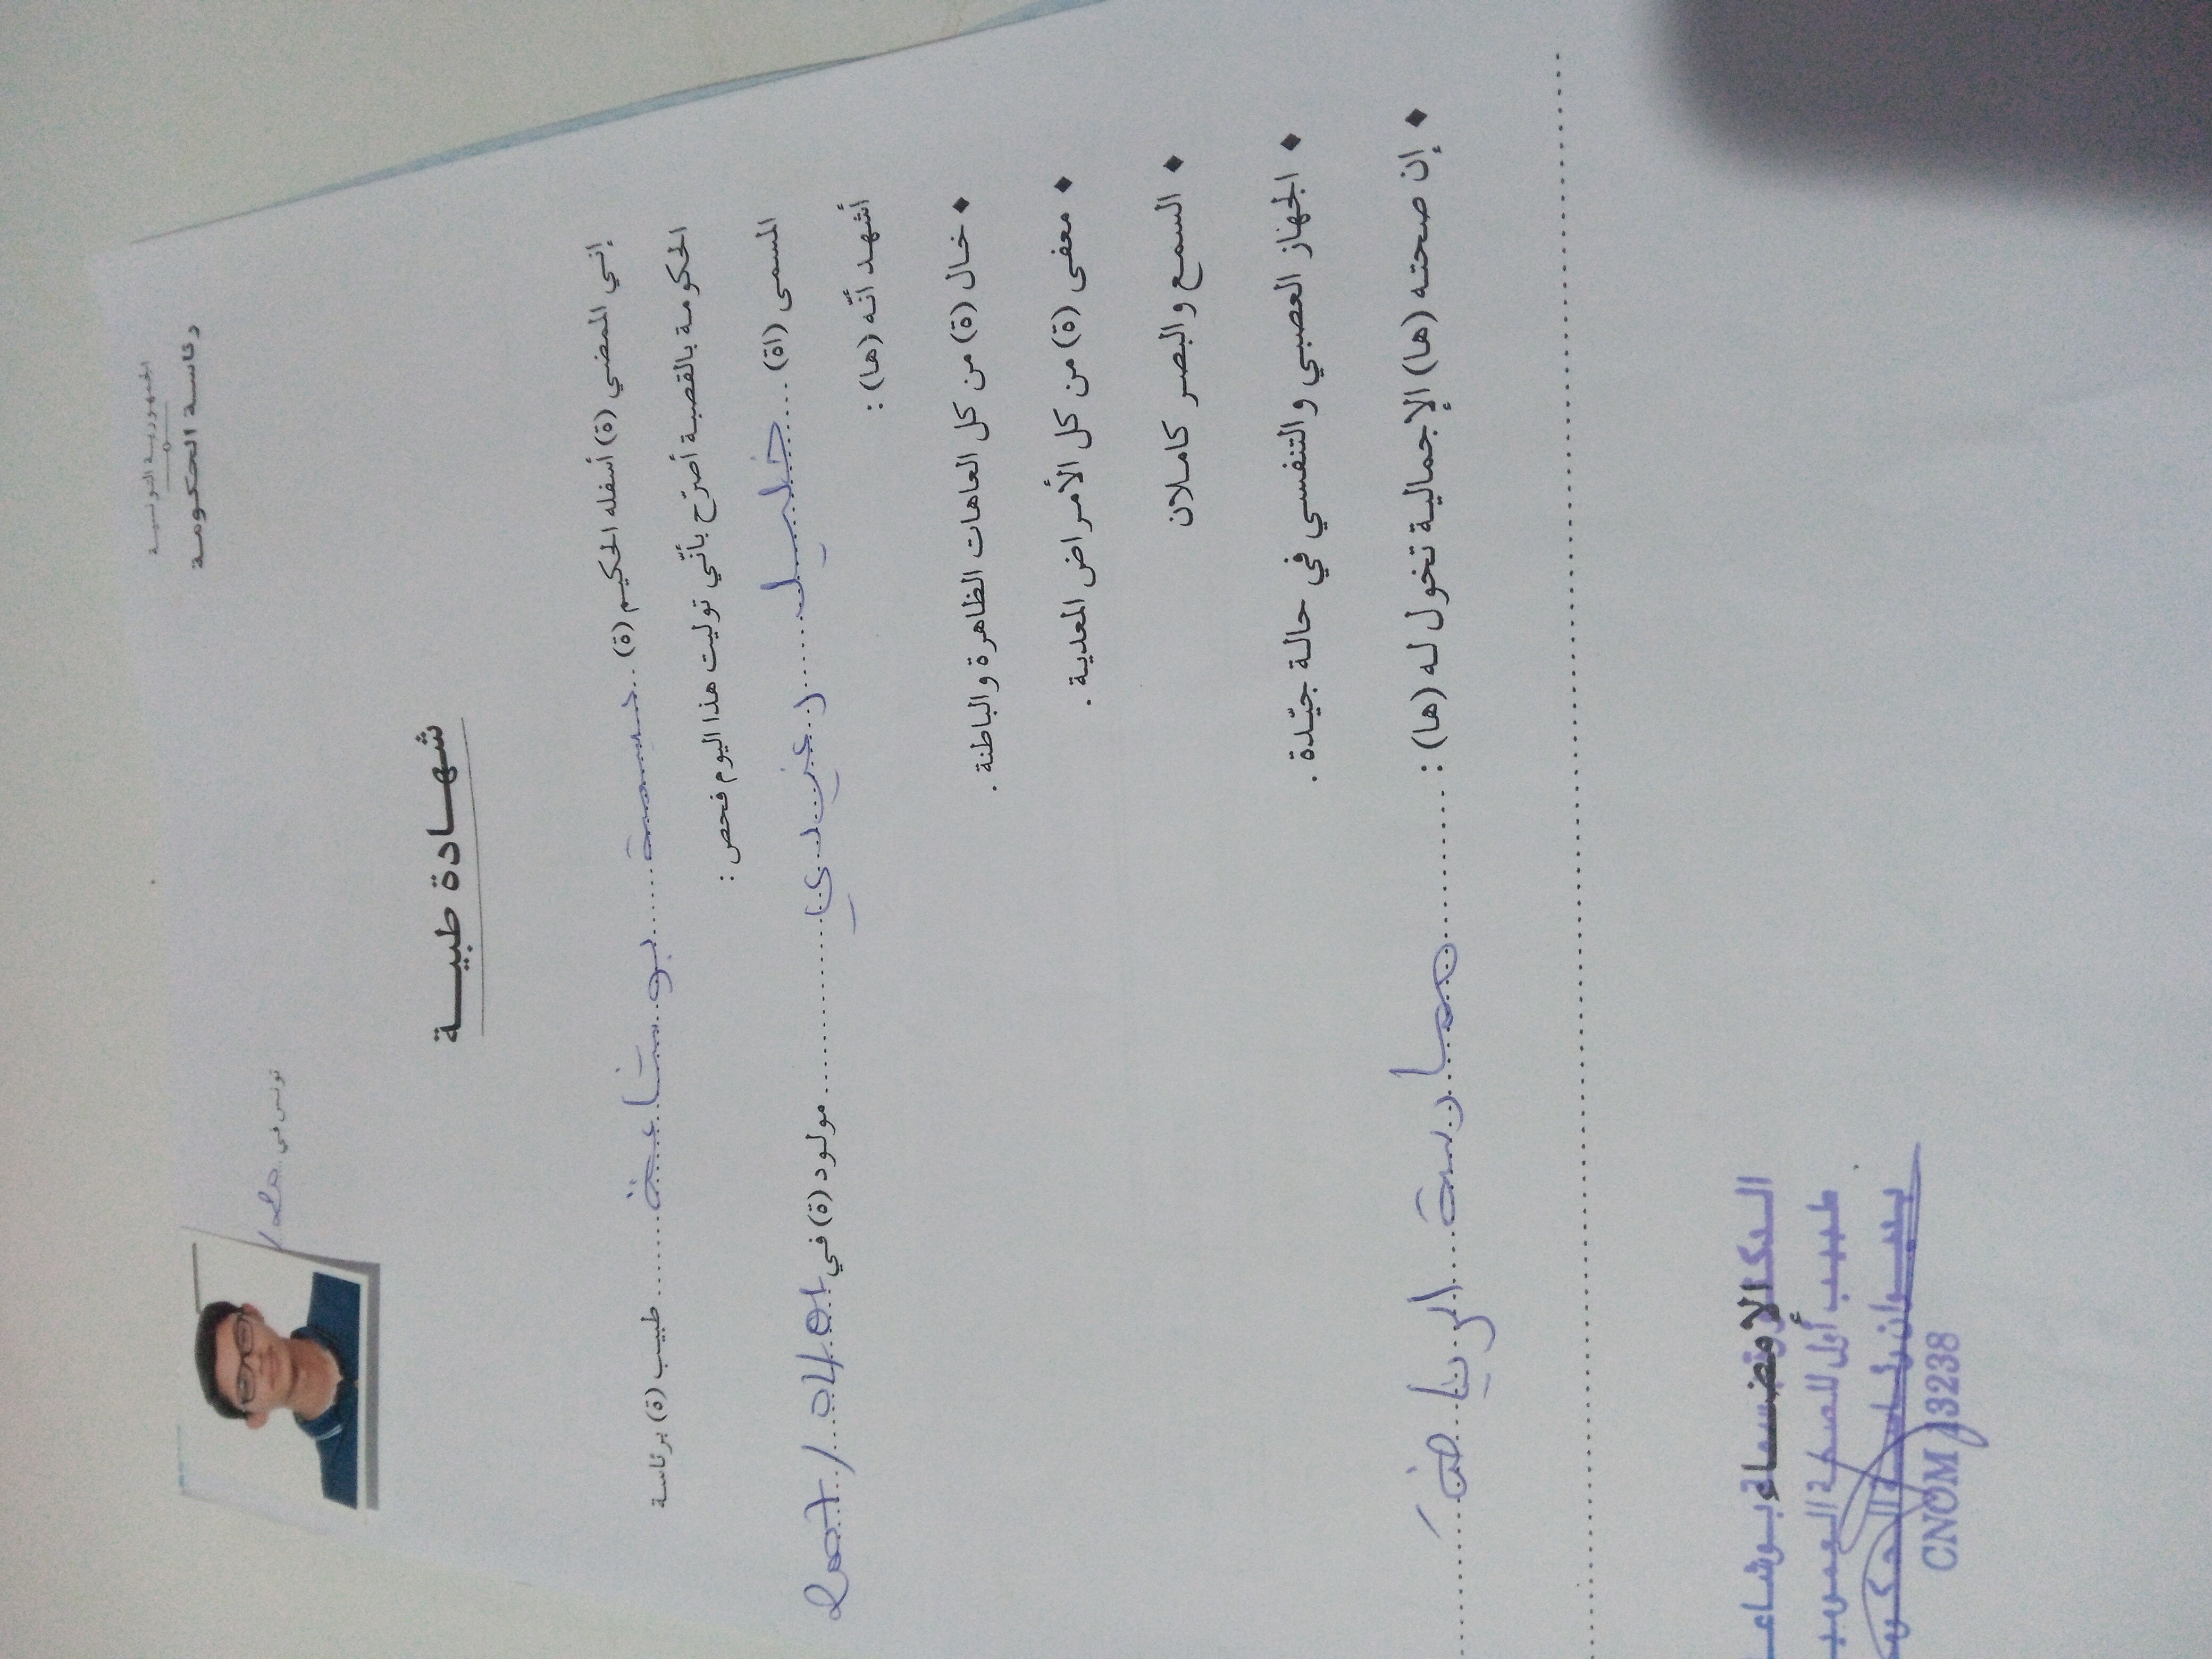 الجمهورية التونسية
رئاسة الحكومة
تونس في
شهادة طبية
إني الممضي (ة) أسفله الحكيم (ة) ... بسمة ... بوشاعة ... طبيب (ة) برئاسة
الحكومة بالقصبة أصرّح بأنّي توليت هذا اليوم فحص :
المسمى (اة) ... خليل ... مولود (ة) في
أشهد أنّه (ها) :
♦ خال (ة) من كل العاهات الظاهرة والباطنة .
♦ معفى (ة) من كل الأمراض المعدية .
♦ السمع والبصر كاملان
♦ الجهاز العصبي والتنفسي في حالة جيّدة .
♦ إن صحته (ها) الإجمالية تخول له (ها) : ... ممارسة ... الرياضة
الإمضاء
طبيب أول للصحة العمومية
CNOM 13238